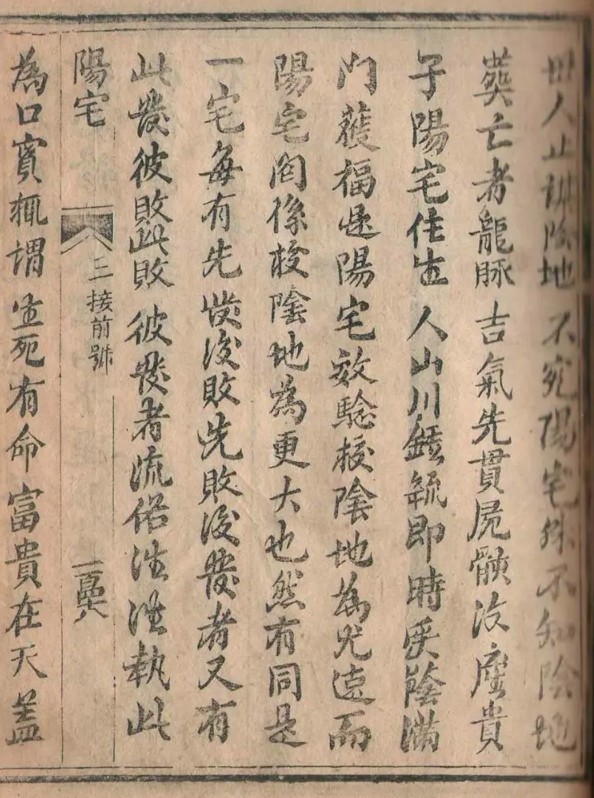 世人止講陰地不究陽宅殊不知陰地
葬亡者龍脉吉氣先貫屍骸後廕貴
子陽宅住生人山川鍾毓即時受蔭滿
门獲福是陽宅效驗校陰地為尤速而
陽宅関係校陰地為更大也然有同是
一宅每有先發後敗先敗後發者又有
此發彼敗此敗彼發者流俗往往執此
陽宅
三接前號
為口實輒謂生死有命富貴在天盖